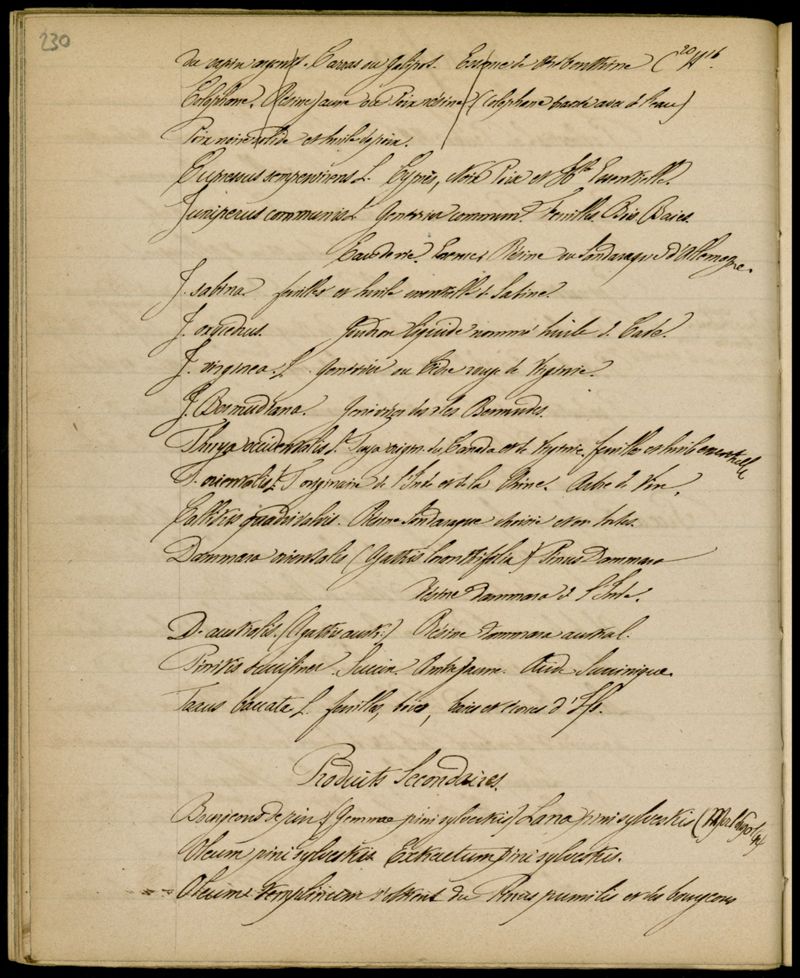 230
du sapin argenté. Barras ou Galipot. Essence de térébenthine (C20H16.
Colophane. Résine jaune ou Poix résine (Colophane brassée avec de l'eau)
Poix noire solide et huile de poix.
Cupressus sempervirens L. Cyprès, Noix Poix et Hle Essentielle.
Juniperus communis L. Genévrier commun. Feuilles Bois Baies.
Eau de vie. Vernis Résine ou Sandaraque d'Allemagne.
J. sabina. feuilles et huile essentielle de Sabine.
J. oxycedrus. Goudron liquide nommé huile de Cade.
J. virginea. L. Genévrier ou Cèdre rouge de Virginie.
J. Bermudiana. Genévrier des îles Bermudes.
Thuya occidentalis L. Tuya origre du Canada et de Virginie. feuilles et huile essentielle
T. orientalis L. originaire de l'Inde et de la Chine. Arbre de Vie.
Callitris quadrivalvis. Résine Sandaraque choisie et en sortes.
Dammara orientalis (Agathis loranthifolia) Pinus Dammara
résine dammara de l'Inde.
D. australis. (Agathis austr.) Résine dammara austral.
Pinites succifner. Succin. Ambre jaune. Acide Succinique.
Taxus baccata L. feuilles, bois, baies et écorces d'If.
Produits Secondaires.
Bourgeons de pin (Gemmae pini sylvestris) Lana pini sylvestris
Oleum pini sylvestris Extractum pini sylvestris.
Oleum templinum s'obtient du Pinus pumilis et des bourgeons